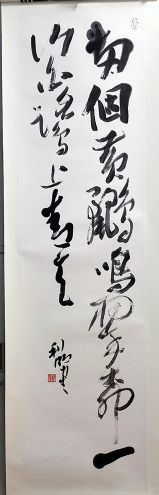 两個黄鸝鳴翠柳一
行白鷺上青天